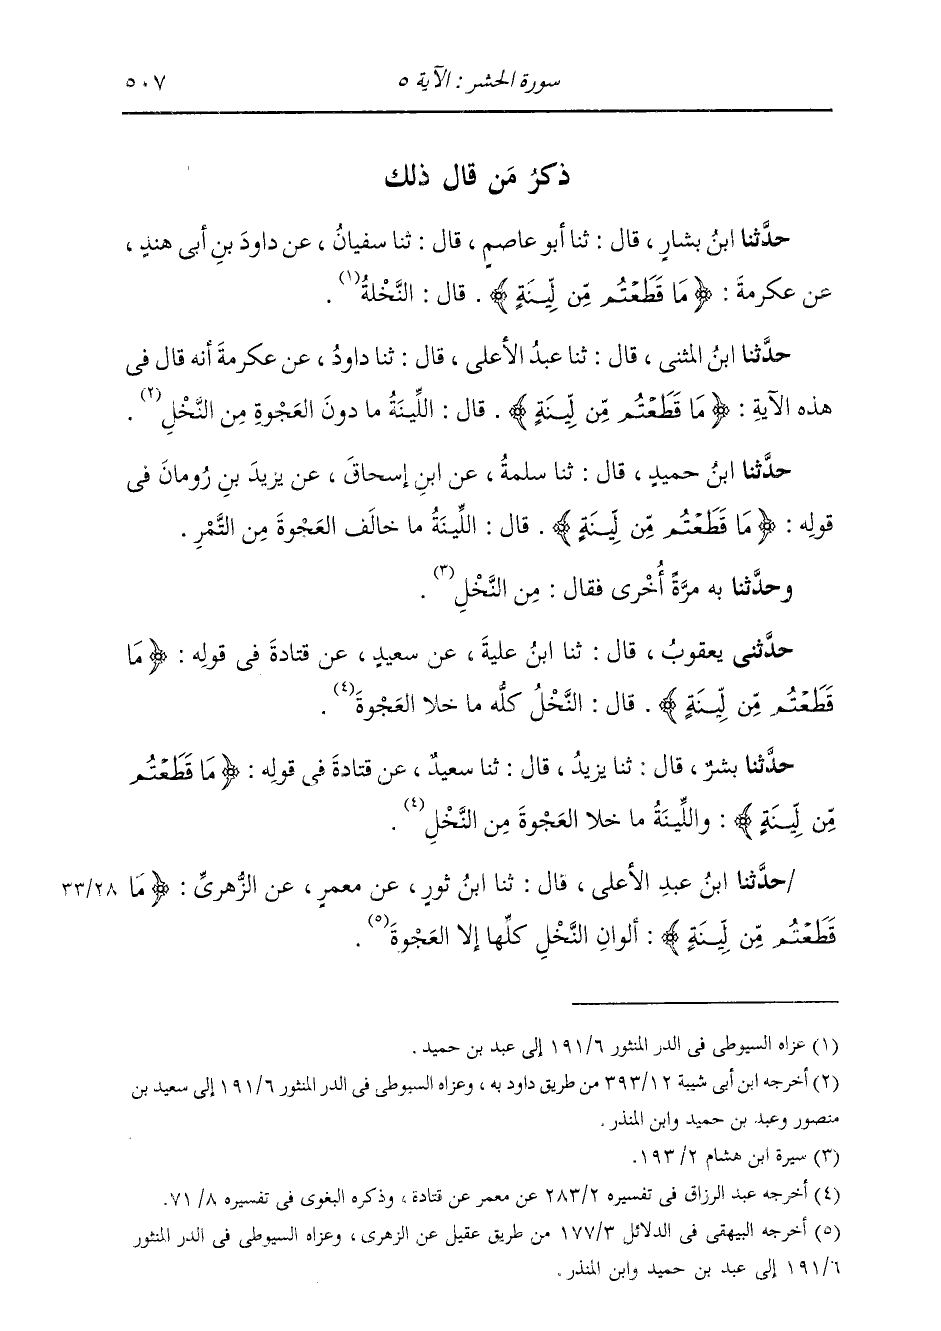 سورة الحشر : الآية ٥ ٥٠٧
ذكرُ مَن قال ذلك
حدَّثنا ابنُ بشارٍ ، قال : ثنا أبو عاصمٍ ، قال : ثنا سفيانُ ، عن داودَ بنِ أبى هندٍ ،
عن عكرمةَ : ﴿ مَا قَطَعْتُم مِّن لِّينَةٍ ﴾ . قال : النَّخْلةُ(١) .
حدَّثنا ابنُ المثنى ، قال : ثنا عبدُ الأعلى ، قال : ثنا داودُ ، عن عكرمةَ أنه قال فى
هذه الآيةِ : ﴿ مَا قَطَعْتُم مِّن لِّينَةٍ ﴾ . قال : اللِّينَةُ ما دونَ العَجْوةِ مِن النَّخْلِ(٢) .
حدَّثنا ابنُ حميدٍ ، قال : ثنا سلمةُ ، عن ابنِ إسحاقَ ، عن يزيدَ بنِ رُومانَ فى
قولِه : ﴿ مَا قَطَعْتُم مِّن لِّينَةٍ ﴾ . قال : اللِّينَةُ ما خالَف العَجْوةَ مِن التَّمْرِ .
وحدَّثنا به مرَّةً أُخْرى فقال : مِن النَّخْلِ(٣) .
حدَّثنى يعقوبُ ، قال : ثنا ابنُ عليةَ ، عن سعيدٍ ، عن قتادةَ فى قولِه : ﴿ مَا
قَطَعْتُم مِّن لِّينَةٍ ﴾ . قال : النَّخْلُ كلُّه ما خلا العَجْوةَ(٤) .
حدَّثنا بشرٌ ، قال : ثنا يزيدُ ، قال : ثنا سعيدٌ ، عن قتادةَ فى قولِه : ﴿ مَا قَطَعْتُم
مِّن لِّينَةٍ ﴾ : واللِّينَةُ ما خلا العَجْوةَ مِن النَّخْلِ(٤) .
/حدَّثنا ابنُ عبدِ الأعلى ، قال : ثنا ابنُ ثورٍ ، عن معمرٍ ، عن الزُّهرىِّ : ﴿ مَا ٣٣/٢٨
قَطَعْتُم مِّن لِّينَةٍ ﴾ : ألوانِ النَّخْلِ كلِّها إلا العَجْوةَ(٥) .
(١) عزاه السيوطى فى الدر المنثور ١٩١/٦ إلى عبد بن حميد .
(٢) أخرجه ابن أبى شيبة ٣٩٣/١٢ من طريق داود به ، وعزاه السيوطى فى الدر المنثور ١٩١/٦ إلى سعيد بن
منصور وعبد بن حميد وابن المنذر .
(٣) سيرة ابن هشام ٢/ ١٩٣.
(٤) أخرجه عبد الرزاق فى تفسيره ٢٨٣/٢ عن معمر عن قتادة ، وذكره البغوى فى تفسيره ٨/ ٧١.
(٥) أخرجه البيهقى فى الدلائل ١٧٧/٣ من طريق عقيل عن الزهرى ، وعزاه السيوطى فى الدر المنثور
١٩١/٦ إلى عبد بن حميد وابن المنذر .